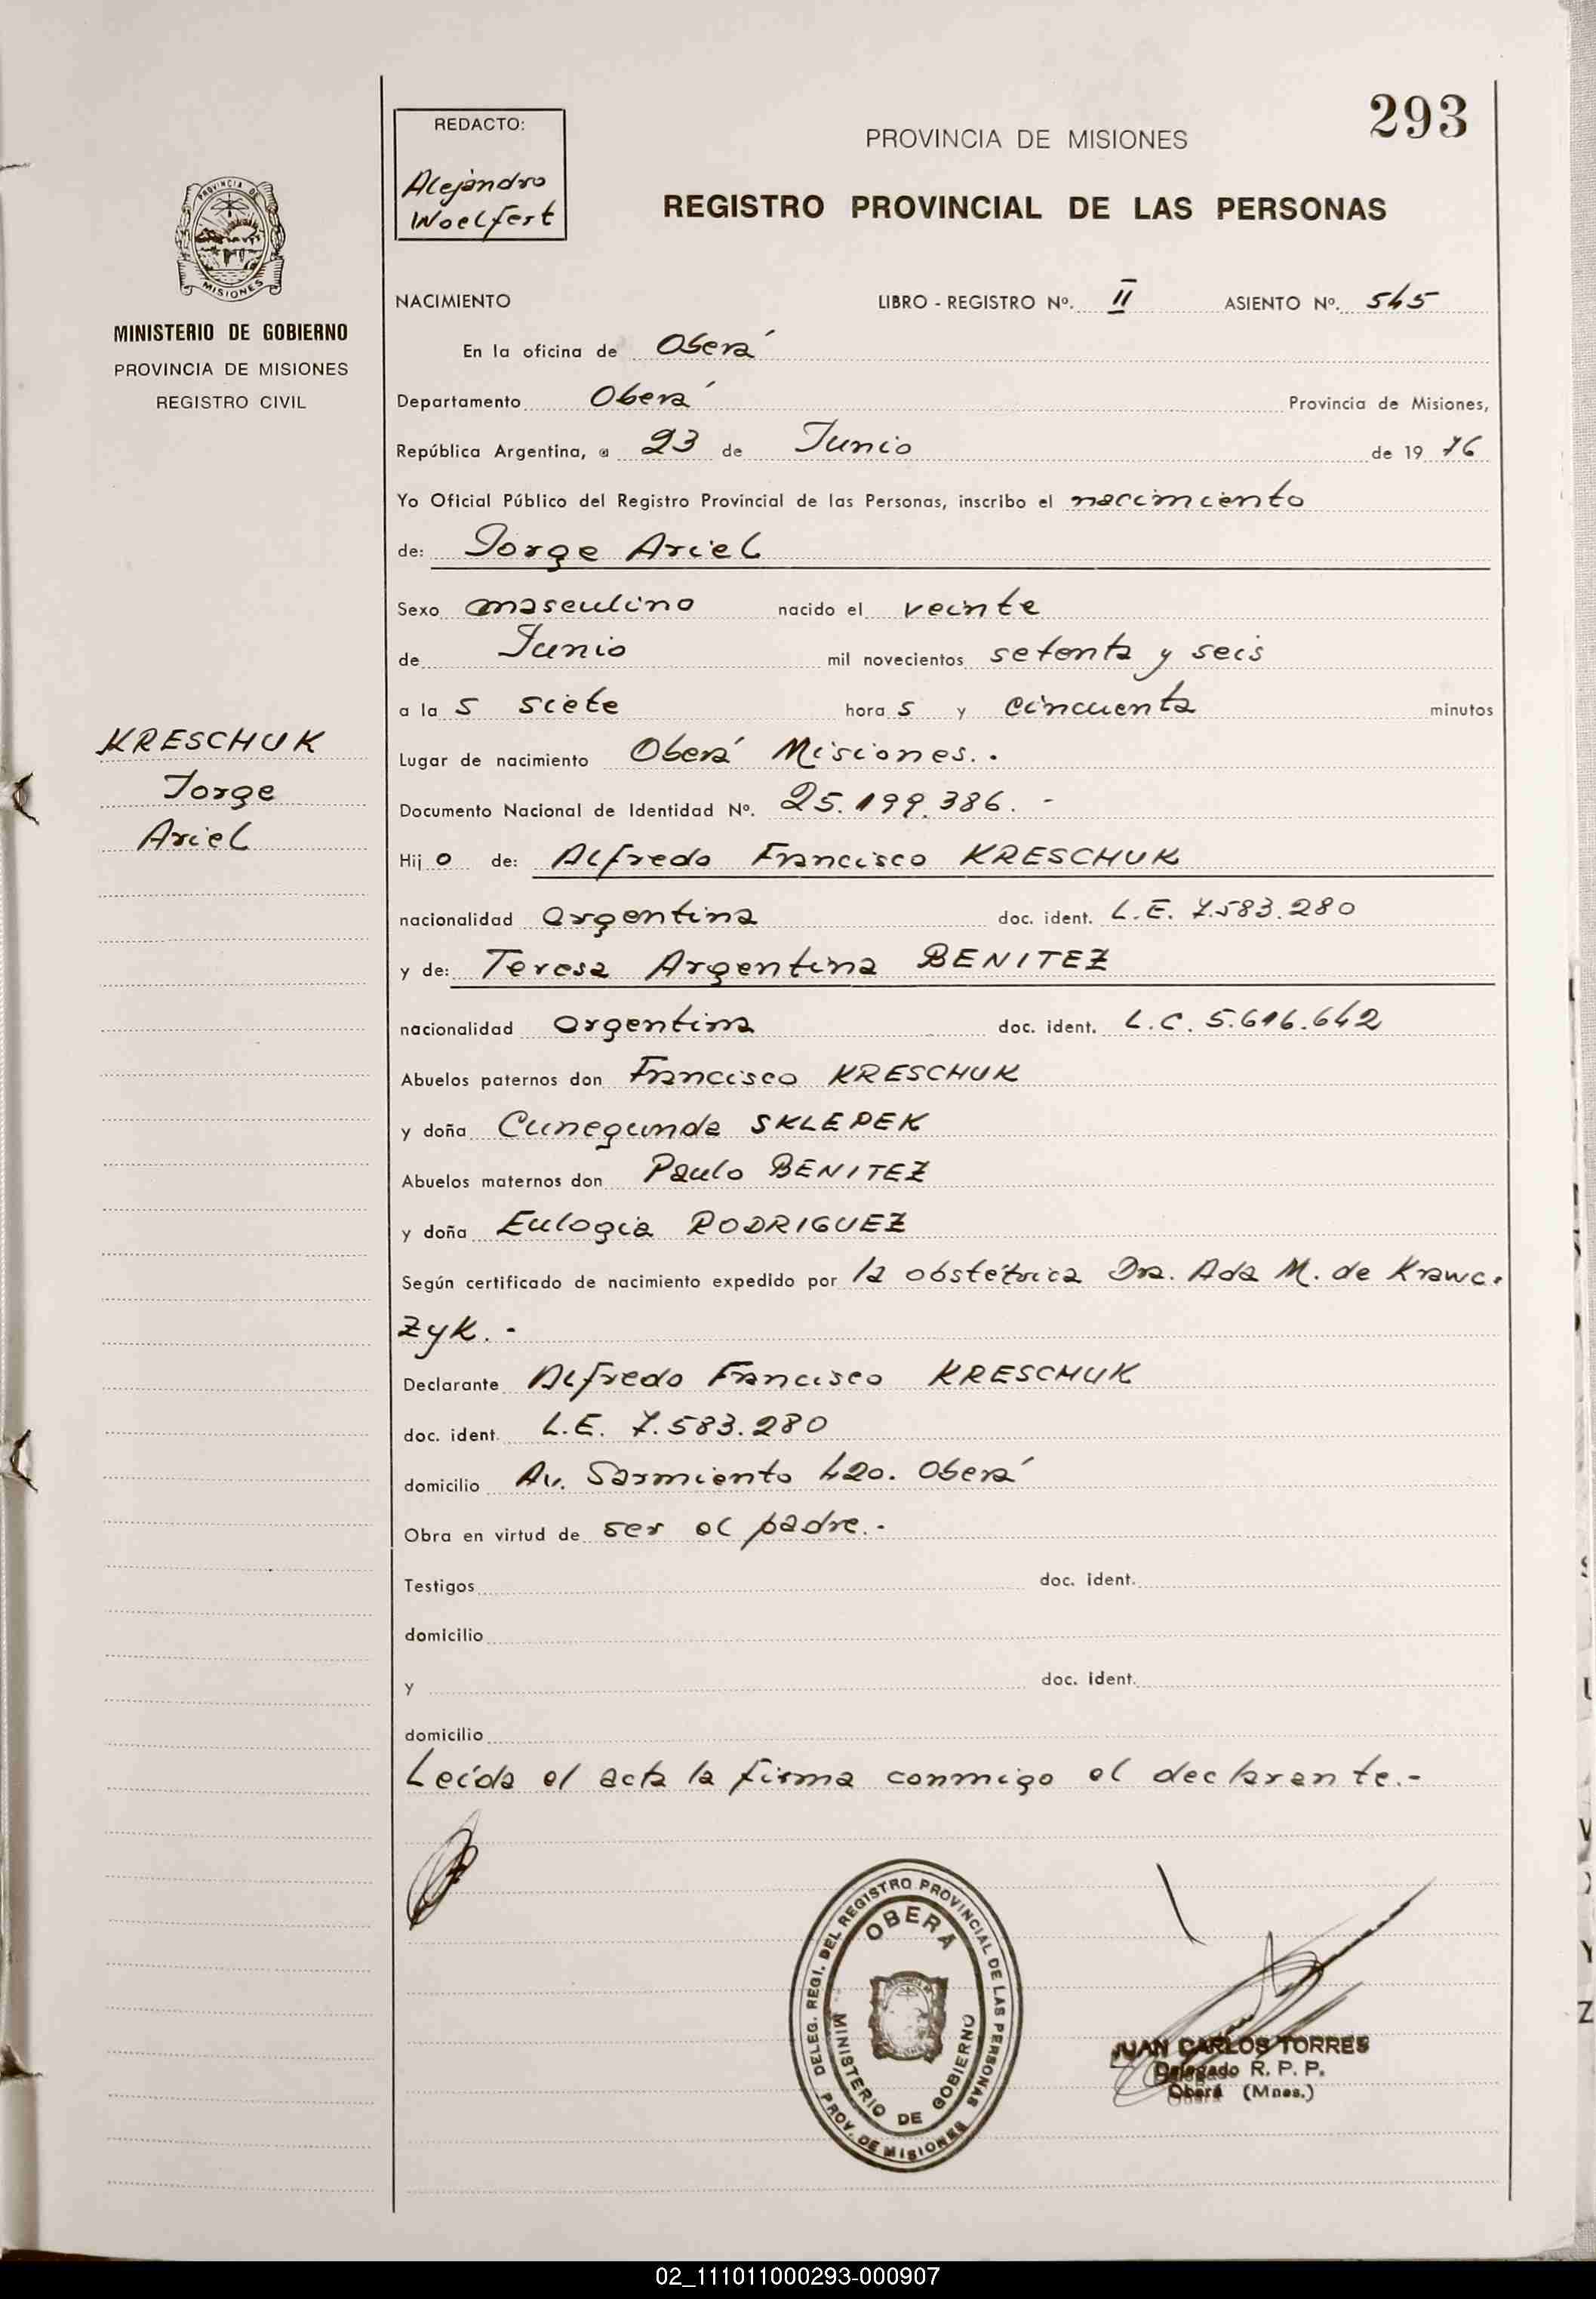 293
REDACTO:
Alejandro
Woelfert
PROVINCIA DE MISIONES
REGISTRO PROVINCIAL DE LAS PERSONAS
PROVINCIA DE
MISIONES
MINISTERIO DE GOBIERNO
PROVINCIA DE MISIONES
REGISTRO CIVIL
NACIMIENTO LIBRO - REGISTRO Nº. II ASIENTO Nº. 545
En la oficina de Oberá
Departamento Oberá Provincia de Misiones,
República Argentina, a 23 de Junio de 19 76
Yo Oficial Público del Registro Provincial de las Personas, inscribo el nacimiento
de: Jorge Ariel
Sexo masculino nacido el veinte
de Junio mil novecientos setenta y seis
a la s siete hora s y cincuenta minutos
KRESCHUK
Jorge
Ariel
Lugar de nacimiento Oberá Misiones. -
Documento Nacional de Identidad Nº. 25.199.386. -
Hij o de: Alfredo Francisco KRESCHUK
nacionalidad argentina doc. ident. L.E. 7.583.280
y de: Teresa Argentina BENITEZ
nacionalidad argentina doc. ident. L.C. 5.616.642
Abuelos paternos don Francisco KRESCHUK
y doña Cunegunda SKLEPEK
Abuelos maternos don Paulo BENITEZ
y doña Eulogia RODRIGUEZ
Según certificado de nacimiento expedido por la obstétrica Dra. Ada M. de Krawc-
zyk. -
Declarante Alfredo Francisco KRESCHUK
doc. ident. L.E. 7.583.280
domicilio Av. Sarmiento 420. Oberá
Obra en virtud de ser el padre. -
Testigos doc. ident.
domicilio
y doc. ident.
domicilio
Leída el acta la firma conmigo el declarante.-
DELEG. REGI. DEL REGISTRO PROVINCIAL DE LAS PERSONAS
OBERA
MINISTERIO DE GOBIERNO
PROV. DE MISIONES
JUAN CARLOS TORRES
Delegado R. P. P.
Oberá (Mnes.)
02_111011000293-000907